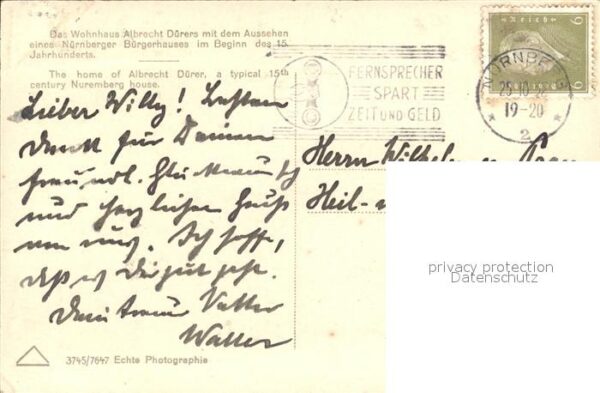 Das Wohnhaus Albrecht Dürers mit dem Aussehen
eines Nürnberger Bürgerhauses im Beginn des 15.
Jahrhunderts.
The home of Albrecht Dürer, a typical 15th
century Nuremberg house.
Lieber Willy! Besten
Dank für Deinen
freundl. Glückwunsch
und herzlichen Gruß
von uns. Ich hoffe,
daß es Dir gut geht.
Dein treuer Vetter
Walter
3745/7647 Echte Photographie
FERNSPRECHER
SPART
ZEIT UND GELD
NÜRNBERG
25.10.
19-20
2
Reich
6
6
Herrn Wilhelm
Heil-
privacy protection
Datenschutz